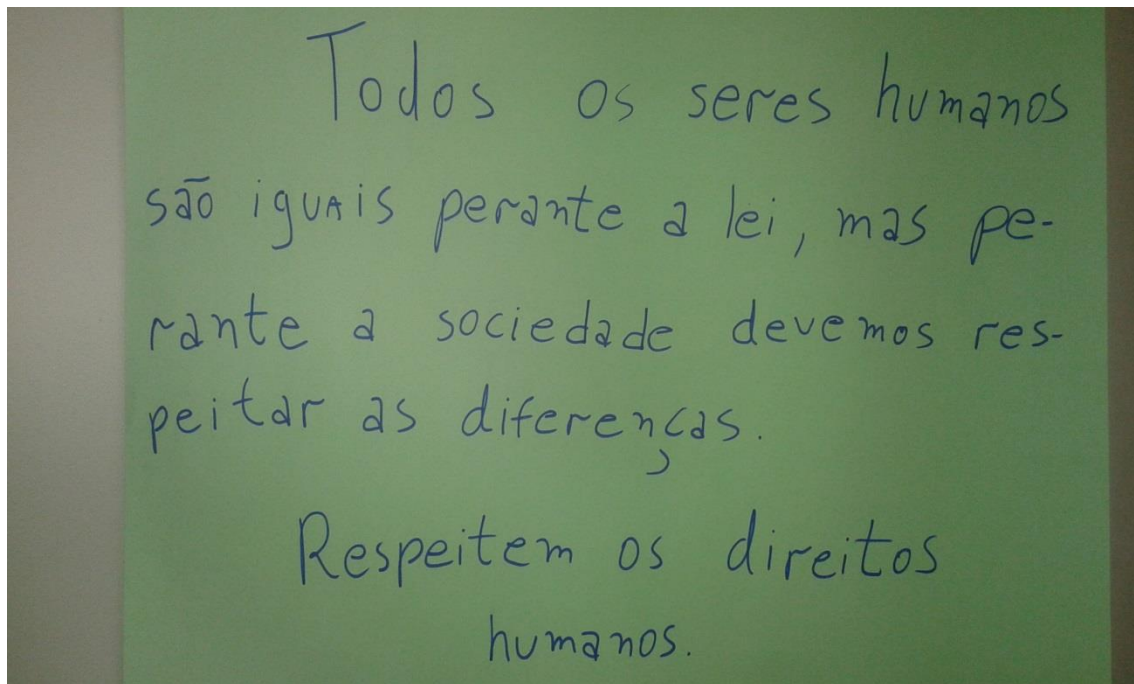 Todos os seres humanos
são iguais perante a lei, mas pe-
rante a sociedade devemos res-
peitar as diferenças.
Respeitem os direitos
humanos.